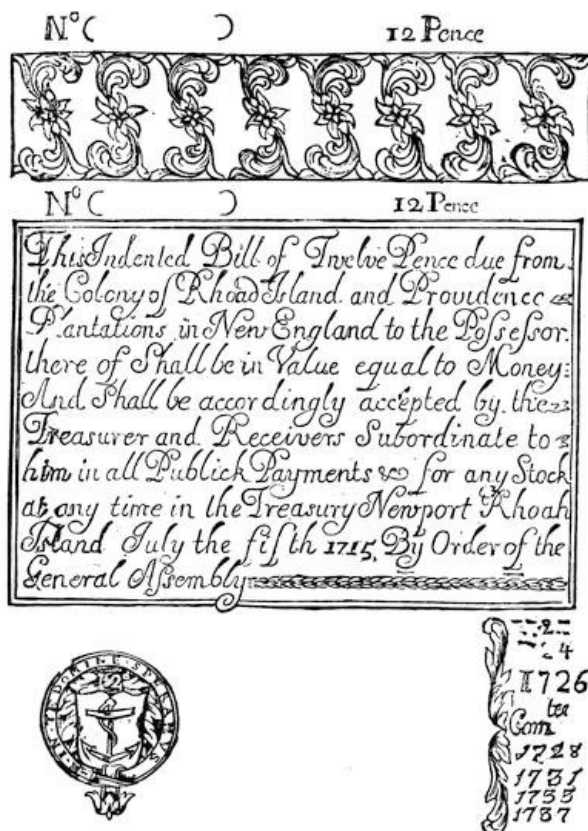 Nº ( ) 12 Pence
Nº ( ) 12 Pence
This Indented Bill of Twelve Pence due from
the Colony of Rhoad Island and Providence
Plantations in New England to the Possessor
there of Shall be in Value equal to Money
And Shall be accordingly accepted by the
Treasurer and Receivers Subordinate to
him in all Publick Payments & for any Stock
at any time in the Treasury Newport Rhoah
Island July the fifth 1715. By Order of the
General Assembly
IN TE DOMINE SPERAMUS
12
2
4
1726
Com tee
1728
1731
1733
1737